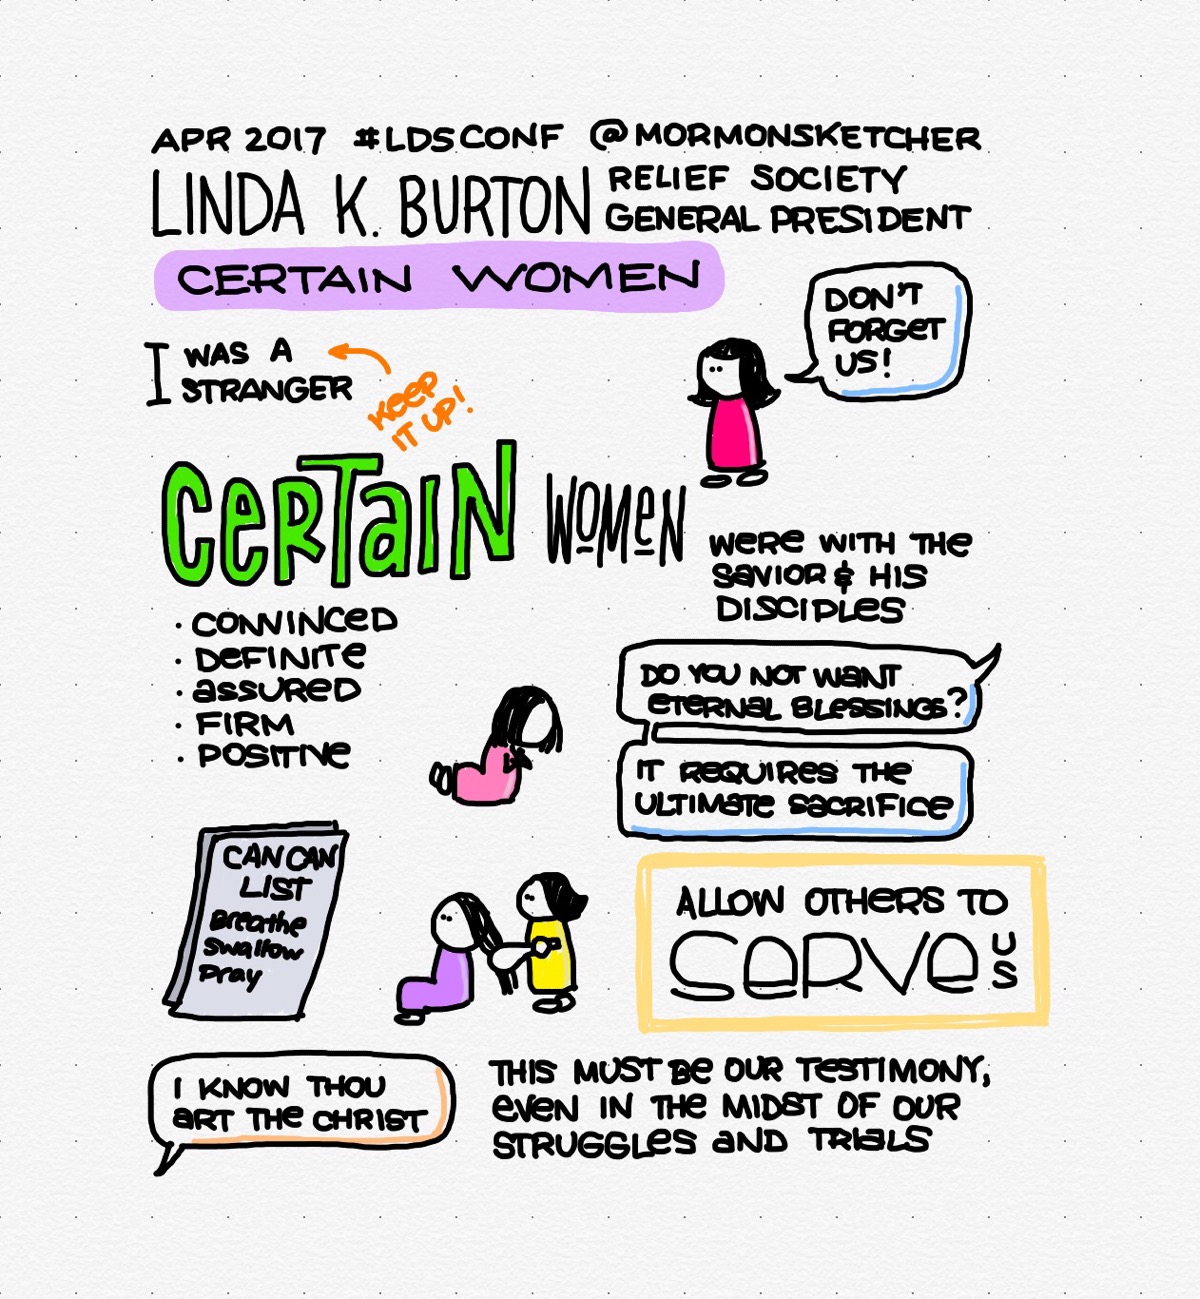 APR 2017 #LDSCONF @MORMONSKETCHER
LINDA K. BURTON
RELIEF SOCIETY
GENERAL PRESIDENT
CERTAIN WOMEN
DON'T
FORGET
US!
I WAS A
STRANGER
KEEP
IT UP!
CERTAIN WOMEN
WERE WITH THE
SAVIOR & HIS
DISCIPLES
· CONVINCED
· DEFINITE
· ASSURED
· FIRM
· POSITIVE
DO YOU NOT WANT
ETERNAL BLESSINGS?
IT REQUIRES THE
ULTIMATE SACRIFICE
CAN CAN
LIST
Breathe
Swallow
Pray
ALLOW OTHERS TO
SERVE US
I KNOW THOU
ART THE CHRIST
THIS MUST BE OUR TESTIMONY,
EVEN IN THE MIDST OF OUR
STRUGGLES AND TRIALS